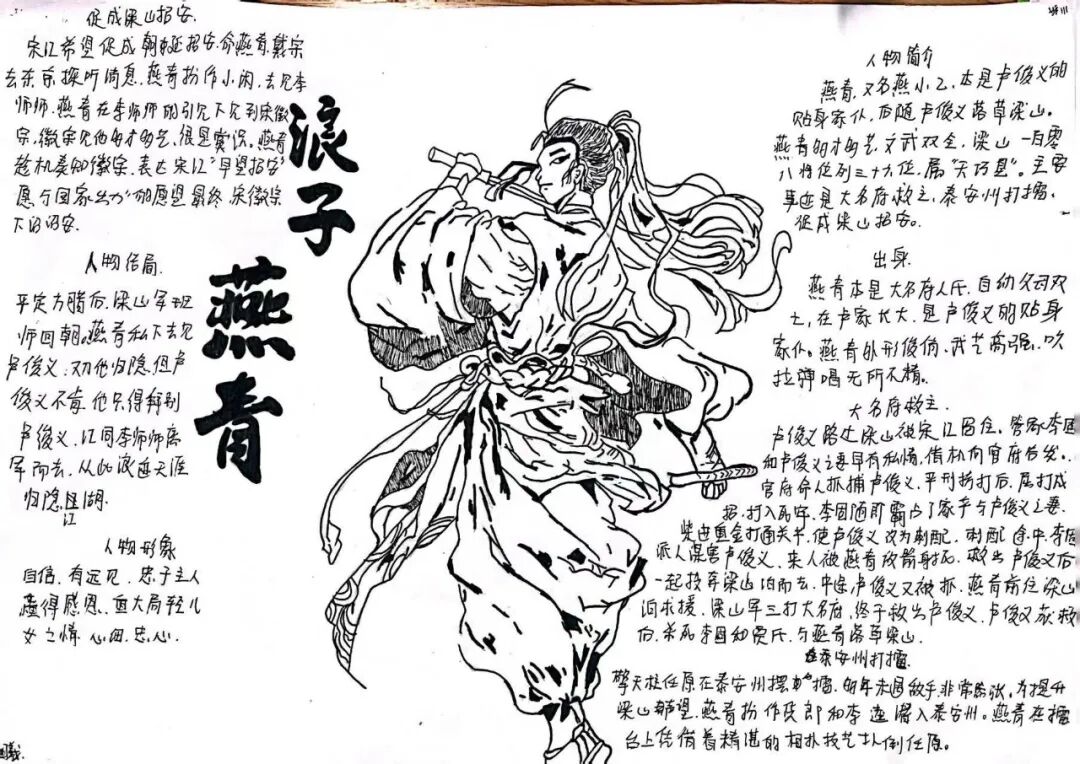 浪子
燕青
促成梁山招安.
宋江希望促成朝廷招安.命燕青.戴宗
去东京探听消息.燕青扮作小闲.去见李
师师.燕青在李师师的引见下见到宋徽
宗,徽宗见他多才多艺,很是赏识。燕青
趁机奏知徽宗.表达宋江"早望招安"
愿与国家出力"的愿望最终.宋徽宗
下诏招安.
人物结局.
平定方腊后.梁山军班
师回朝.燕青私下去见
卢俊义.劝他归隐.但卢
俊义不肯.他只得拜别
卢俊义.
军而去.从此浪迹天涯
归隐江湖.
人物形象
自信.有远见.忠于主人
懂得感恩.重大局轻儿
女之情.心细.忠心.
人物简介
燕青.又名燕小乙.本是卢俊义的
贴身家仆.后随卢俊义落草梁山。
燕青多才多艺.文武双全,梁山一百零
八将位列三十六位.属"天巧星"。主要
事迹是大名府救主.泰安州打擂.
促成梁山招安。
出身.
燕青本是大名府人氏.自幼父母双
亡,在卢家长大.是卢俊义的贴身
家仆。燕青外形俊俏.武艺高强.吹
拉弹唱无所不精.
大名府救主.
卢俊义路过梁山被宋江留住。管家李固
和卢俊义之妻早有私情,借机向官府告发.
官府命人抓捕卢俊义.严刑拷打后.屈打成
招.打入死牢.李固随即霸占了家产与卢俊义之妻.
柴进重金打通关节.使卢俊义改为刺配.刺配途中.李固
派人谋害卢俊义.来人被燕青放箭射死.救出卢俊义后
一起投奔梁山泊而去.中途卢俊义又被抓.燕青前往梁山
泊求援.梁山军三打大名府.终于救出卢俊义.卢俊义获救
后.杀死李固和贾氏.与燕青落草梁山.
泰安州打擂.
擎天柱任原在泰安州摆擂.多年未遇敌手.非常嚣张.为提升
梁山威望.燕青扮作货郎和李逵潜入泰安州。燕青在擂
台上凭借着精湛的相扑技艺扑倒任原。